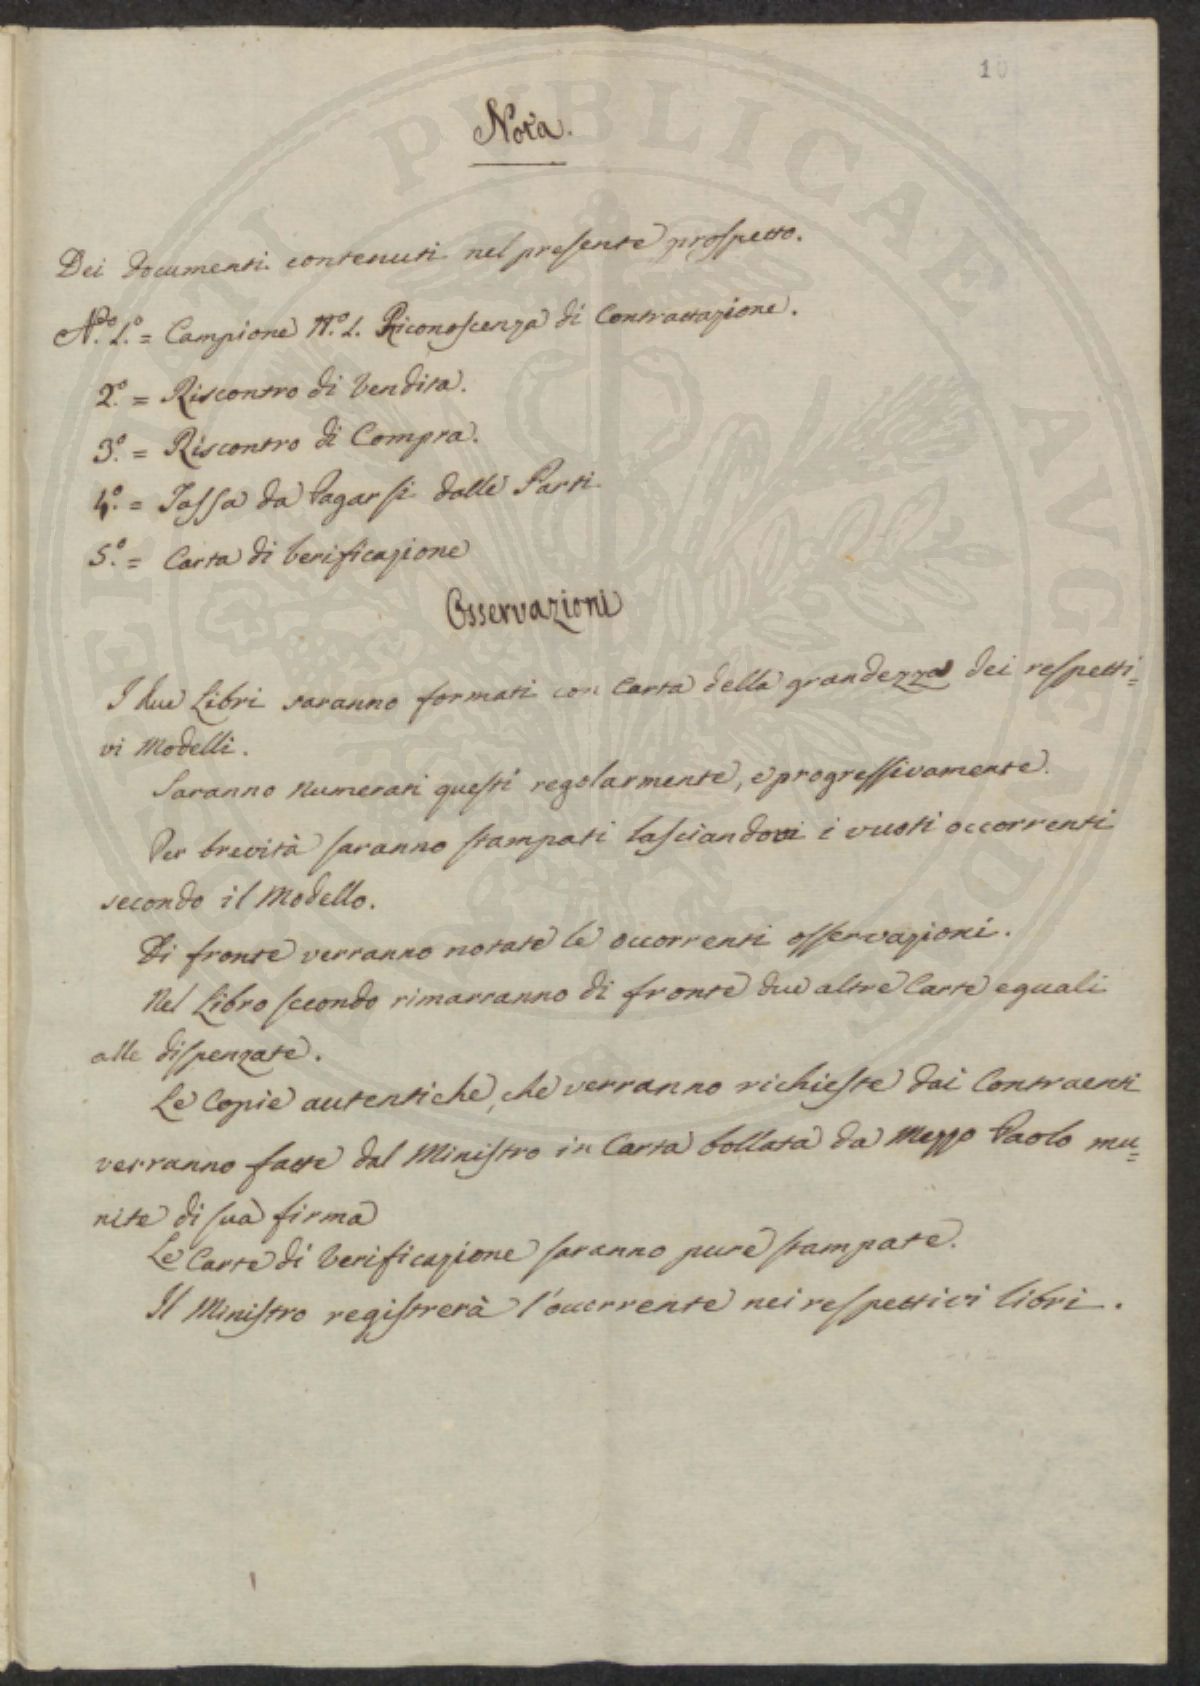 10
Nota.
Dei documenti contenuti nel presente prospetto.
N.º 1.º = Campione N.º 1. Riconoscenza di Contrattazione.
2.º = Riscontro di Vendita.
3.º = Riscontro di Compra.
4.º = Tassa da Pagarsi dalle Parti
5.º = Carta di Verificazione
Osservazioni
I due Libri saranno formati con Carta della grandezza dei respetti=
vi Modelli.
Saranno Numerati questi regolarmente, e progressivamente.
Per brevità saranno stampati lasciandovi i vuoti occorrenti
secondo il Modello.
Di fronte verranno notate le occorrenti osservazioni.
Nel Libro secondo rimarranno di fronte due altre Carte eguali
alle dispenzate.
Le Copie autentiche, che verranno richieste dai Contraenti
verranno fatte dal Ministro in Carta bollata da Mezzo Paolo mu=
nite di sua firma
Le Carte di Verificazione saranno pure stampate.
Il Ministro registrerà l'occorrente nei respettivi libri.